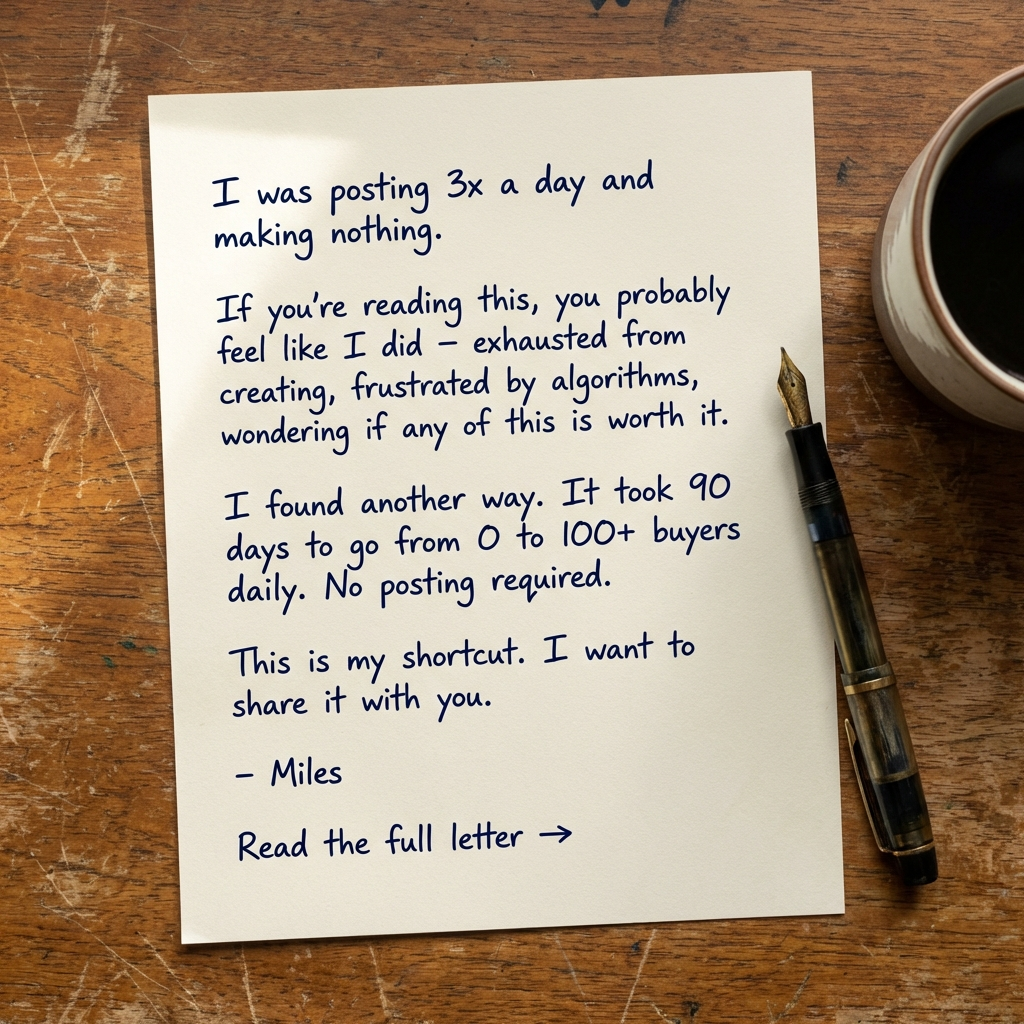 I was posting 3x a day and
making nothing.
If you're reading this, you probably
feel like I did – exhausted from
creating, frustrated by algorithms,
wondering if any of this is worth it.
I found another way. It took 90
days to go from 0 to 100+ buyers
daily. No posting required.
This is my shortcut. I want to
share it with you.
– Miles
Read the full letter →